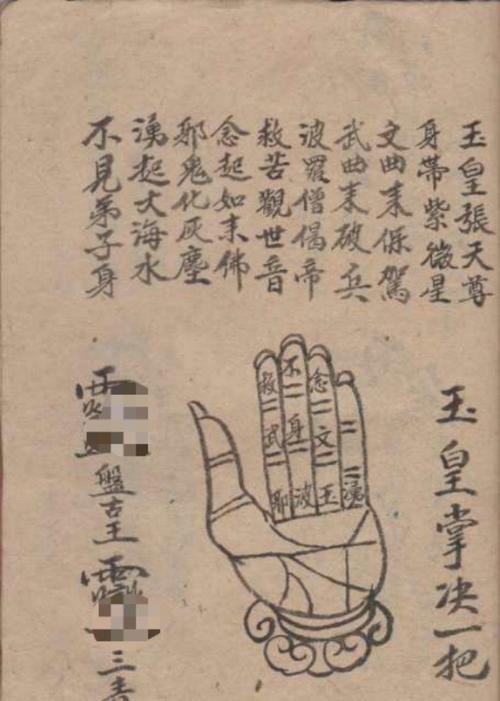 玉皇張天尊
身帶紫微星
文曲来保駕
武曲来破兵
波羅僧偈帝
救苦觀世音
念起如来佛
邪鬼化灰塵
湧起大海水
不見弟子身
玉皇掌决一把
湧
念文玉
不身波
救武邪
盤古王
三